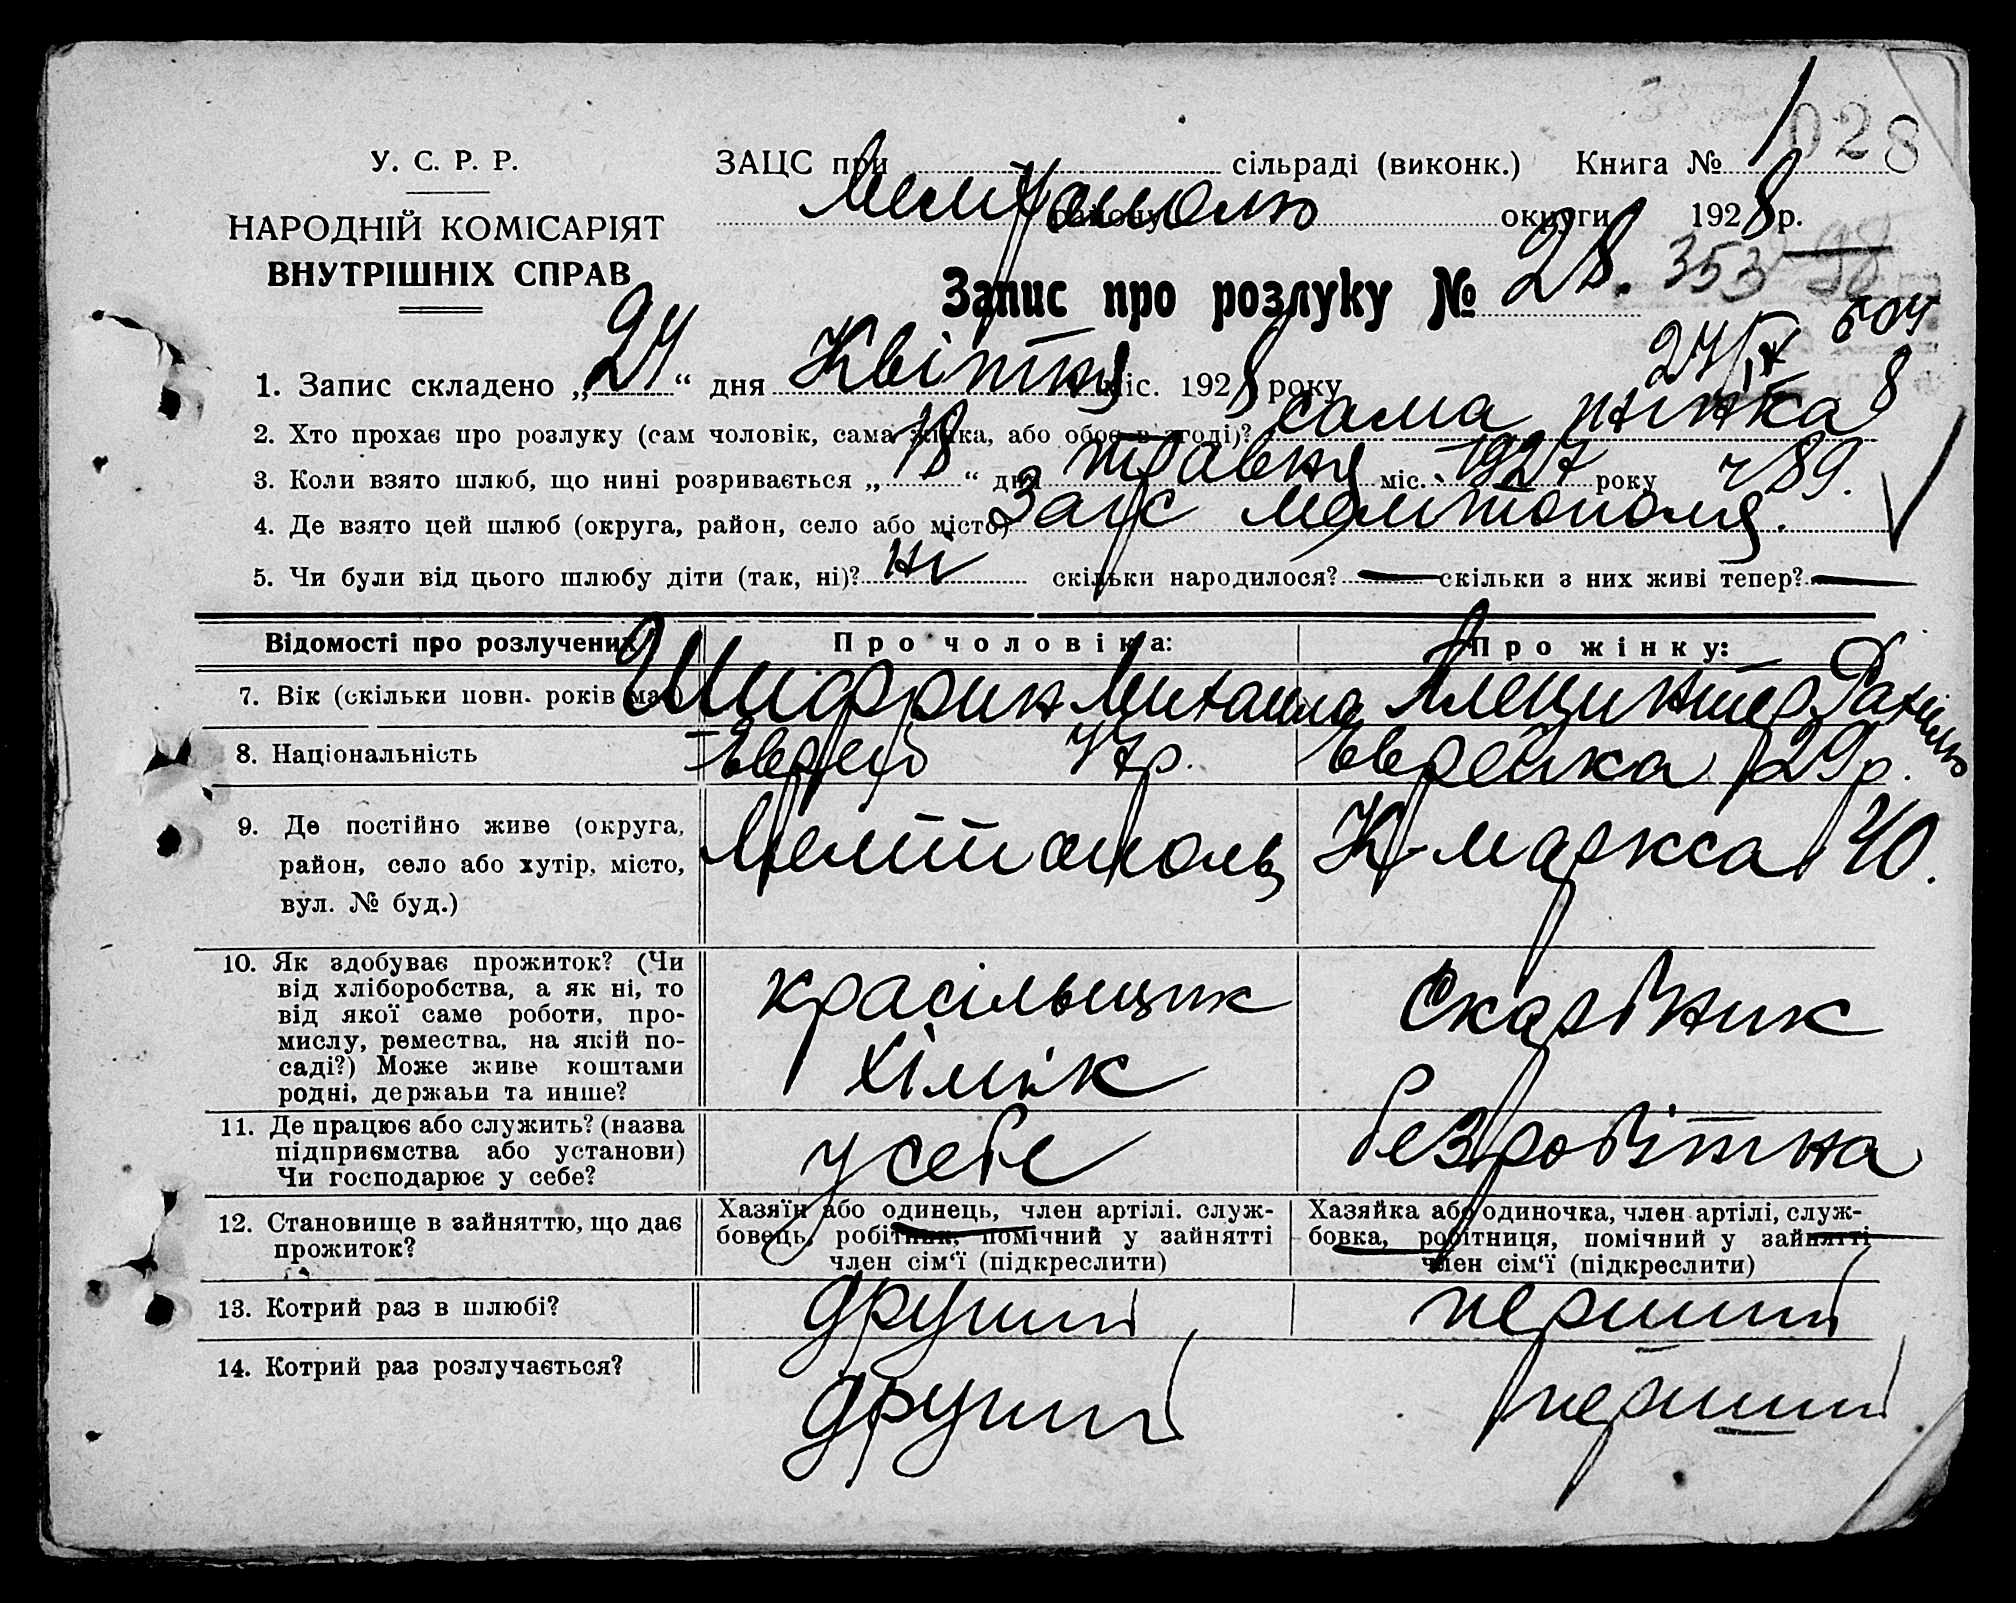 028
У. С. Р. Р.
НАРОДНІЙ КОМІСАРІЯТ
ВНУТРІШНІХ СПРАВ
ЗАЦС при сільраді (виконк.) Книга № 1
Мелітополю
району округи 1928 р.
Запис про розлуку № 28.
353
1. Запис складено „24“ дня Квітня міс. 1928 року
2. Хто прохає про розлуку (сам чоловік, сама жінка, або обоє в згоді)? сама жінка
3. Коли взято шлюб, що нині розривається „18“ дня травня міс. 1927 року ч 89.
4. Де взято цей шлюб (округа, район, село або місто) Загс Мелітополя.
5. Чи були від цього шлюбу діти (так, ні)? ні скільки народилося? — скільки з них живі тепер? —
Відомості про розлучених Про чоловіка: Про жінку:
7. Вік (скільки повн. років має) Шифрин Михаила
8. Національність Єврей 47р. Єврейка 29р.
9. Де постійно живе (округа, район, село або хутір, місто, вул. № буд.) Мелітополь К-Маркса 40.
10. Як здобуває прожиток? (Чи
від хліборобства, а як ні, то
від якої саме роботи, про-
мислу, ремества, на якій по-
саді?) Може живе коштами
родні, держави та инше?
красільщик
хімік
11. Де працює або служить? (назва
підприємства або установи)
Чи господарює у себе?
у себе
безробітна
12. Становище в зайняттю, що дає
прожиток?
Хазяїн або одинець, член артілі. служ-
бовець, робітник, помічний у зайнятті
член сім‘ї (підкреслити)
Хазяйка або одиночка, член артілі, служ-
бовка, робітниця, помічний у зайнятті
член сім‘ї (підкреслити)
13. Котрий раз в шлюбі? другий перший
14. Котрий раз розлучається? другий перший